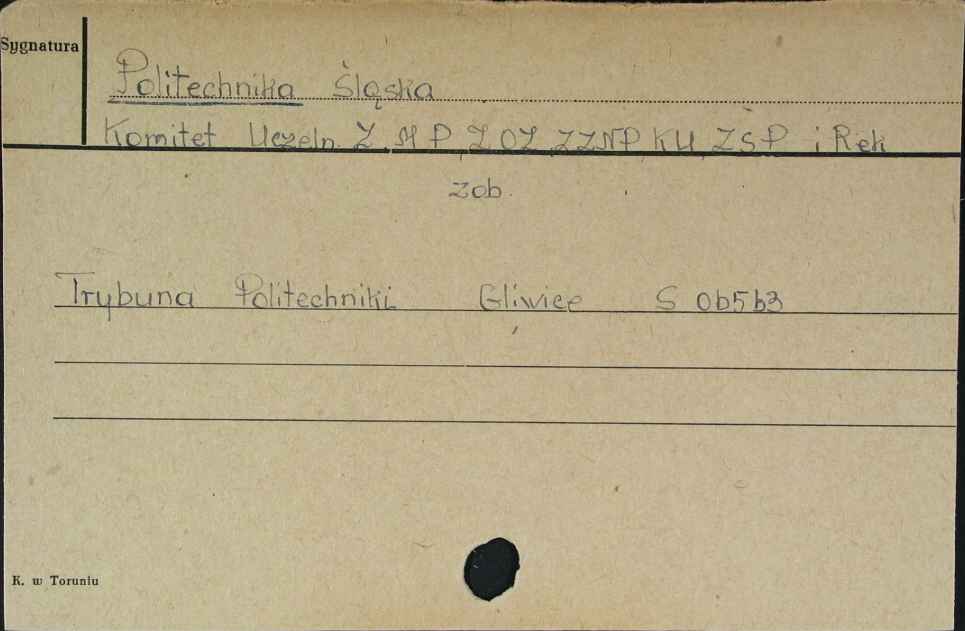 Sygnatura
Politechnika Śląska
Komitet Uczeln. Z M P, Z OZ, ZZNP KU, ZSP i Rek
zob.
Trybuna Politechniki Gliwice S 0b5b3
K. w Toruniu